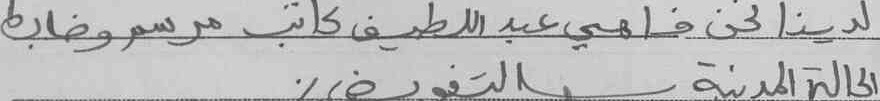 لدينا نحن فاهمي عبد اللطيف كاتب مرسم وضابط
الحالة المدنية بالتفويض ./.